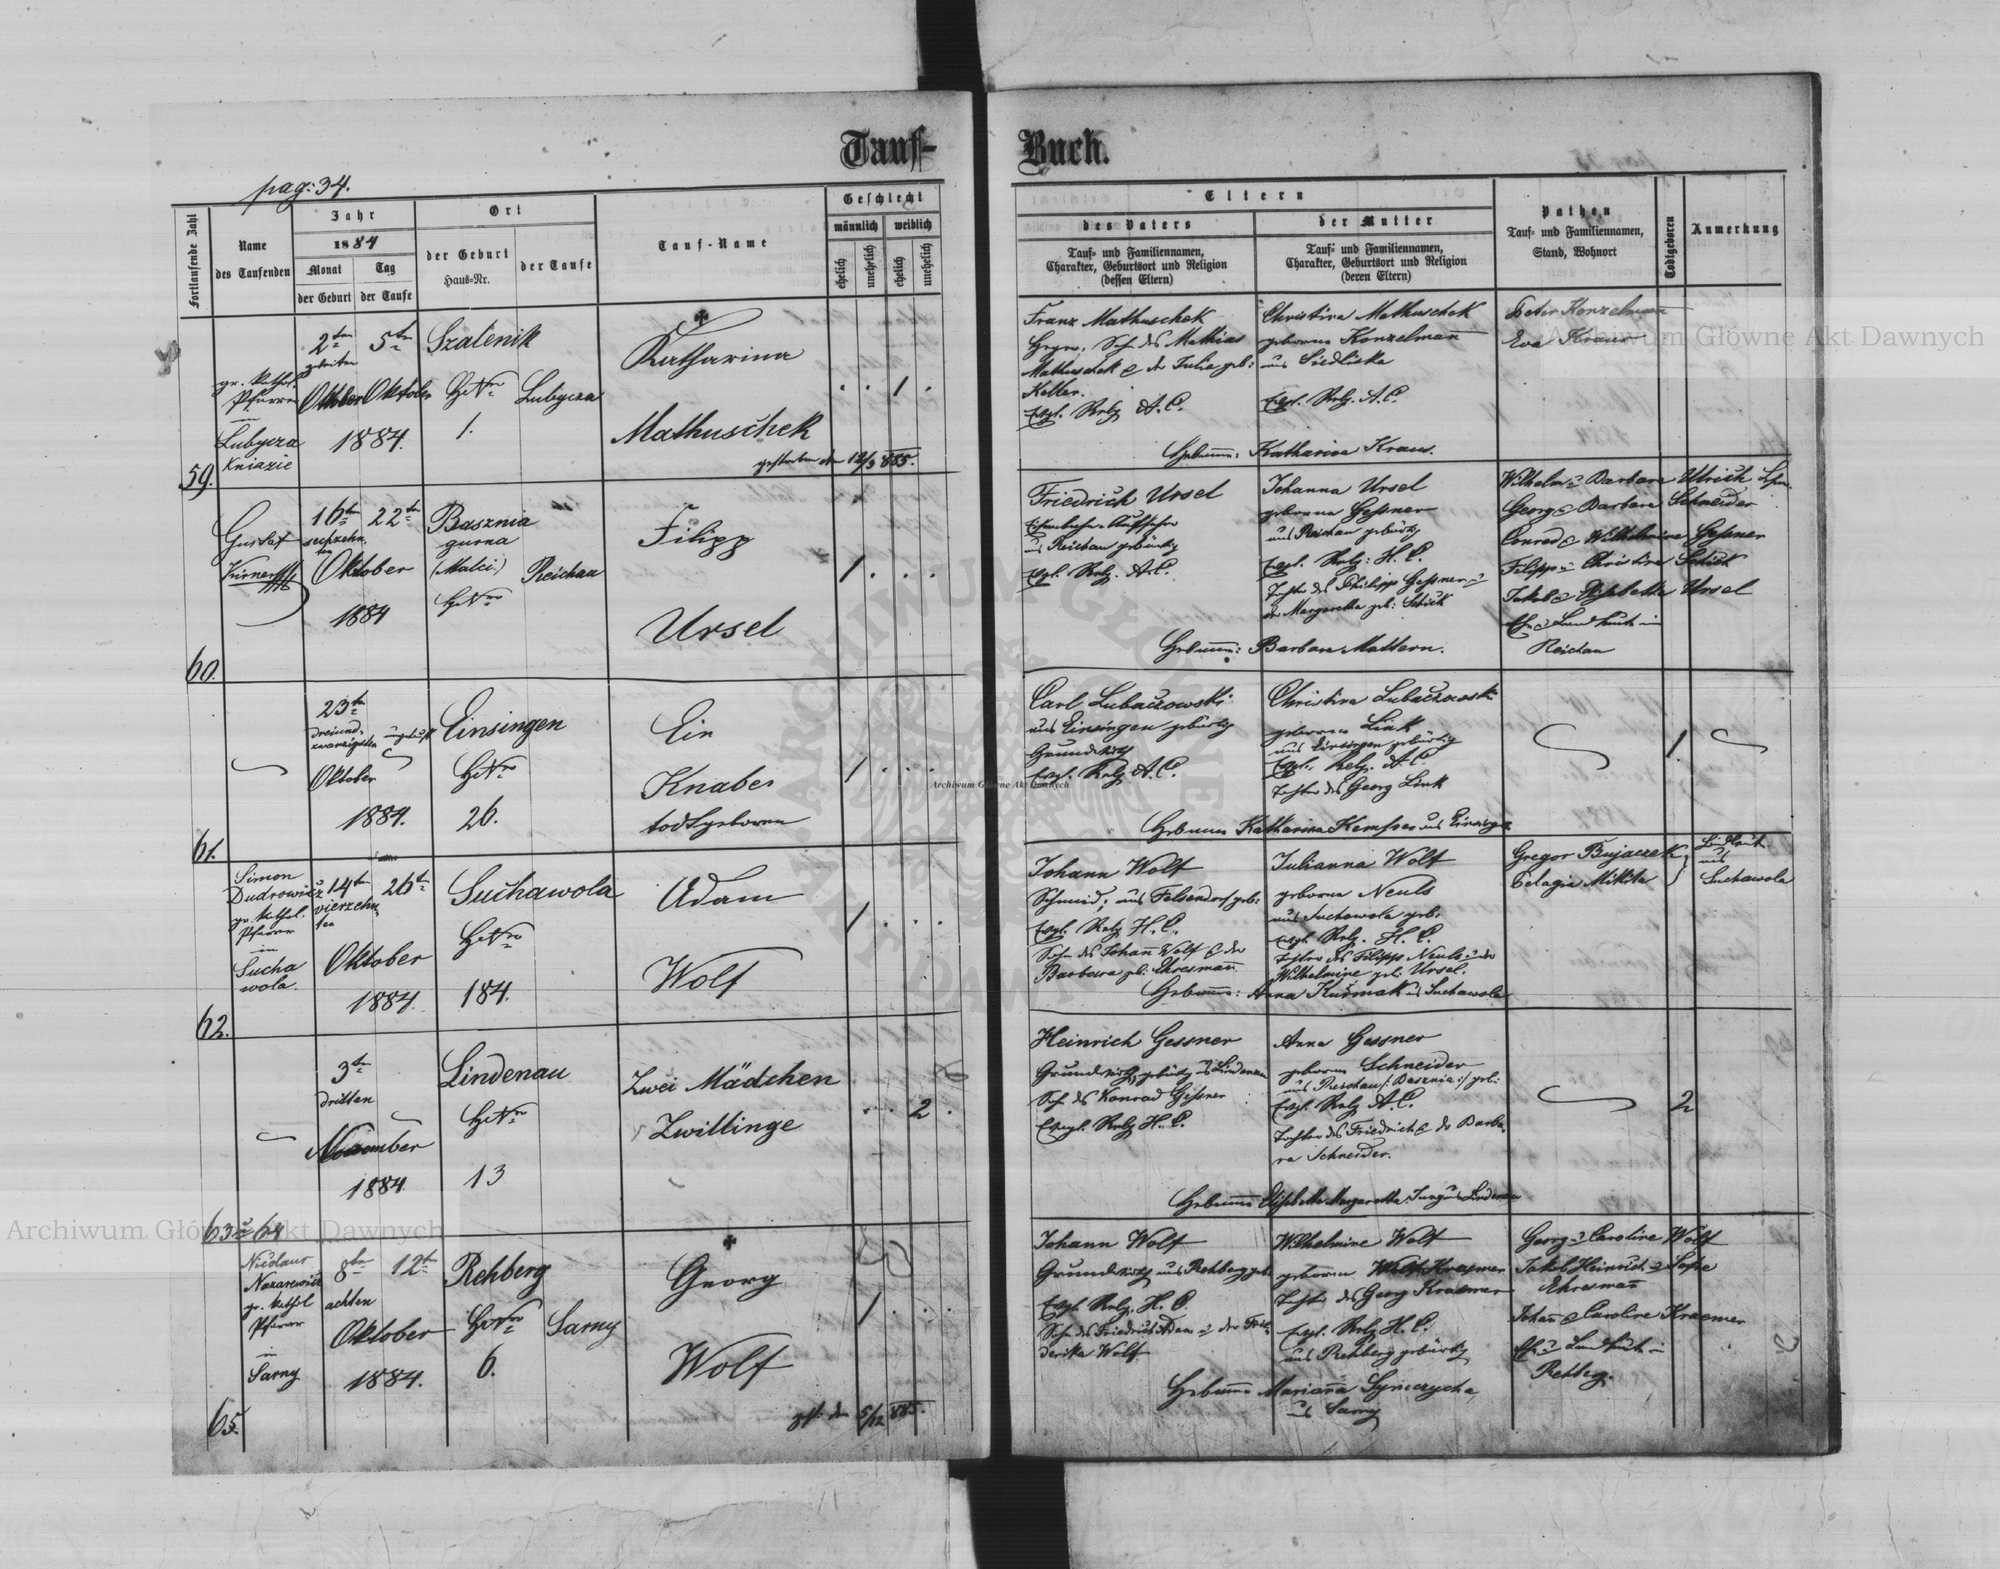 Tauf-
Buch.
pag: 34.
Fortlaufende Zahl
Name
des Taufenden
Jahr
1884
Monat
Tag
der Geburt
der Taufe
Ort
der Geburt
Haus-Nr.
der Taufe
Tauf-Name
Geschlecht
männlich
weiblich
ehelich
unehelich
ehelich
unehelich
Eltern
des Vaters
Tauf- und Familiennamen,
Charakter, Geburtsort und Religion
(dessen Eltern)
der Mutter
Tauf- und Familiennamen,
Charakter, Geburtsort und Religion
(deren Eltern)
Pathen
Tauf- und Familiennamen,
Stand, Wohnort
Todtgeboren
Anmerkung
59.
gr. kathol.
Pfarrer
in
Lubycza
Kniazie
2ten
zweiten
Oktober
1884.
5ten
Oktober
Szalenik
HsNro
1.
Lubycza
Katharina
Mathuschek
gestorben den 12/3 885.
1
Franz Mathuschek
Sohn des Mathias
Mathuschek & der Julia geb:
Keller.
Evgl. Relg. A.C.
Christina Mathuschek
geborne Konzelmann
aus Siedliska
Evgl. Relg. A.C.
Hebamme: Katharina Kraus.
Peter Konzelmann
Eva Kraus
60.
Gustav
Kürner
16ten
sechzehn
ten
Oktober
1884
22ten
Basznia
gurna
(Malci.)
HsNro
Reichau
Filipp
Ursel
1
Friedrich Ursel
Eisenbahn-Aufseher
aus Reichau gebürtig
Evgl. Relg. A.C.
Johanna Ursel
geborne Gessner
aus Reichau gebürtig
Evgl. Relg: H.C.
Tochter des Philipp Gessner u
der Margaretha geb: Schick
Hebamme: Barbara Mattern.
Wilhelm u Barbara Ulrich
Georg & Barbara Schneider
Conrad & Wilhelmine Gessner
Filipp u Christina Schick
Jakob & Elisabetha Ursel
Reichau
61.
23ten
dreiund-
zwanzigsten
Oktober
1884.
ungetauft
Einsingen
HsNro
26.
Ein
Knabe
todtgeboren
1
Carl Lubaczowski
aus Einsingen gebürtig
Grundwirth
Evgl. Relg. A.C.
Christina Lubaczowski
geboren Link
aus Einsingen gebürtig
Evgl. Relg. A.C.
Tochter des Georg Link
Hebamme Katharina Kemfer aus Einsingen
1.
62.
Simon
Dudrowicz
gr. kathol.
Pfarrer
in
Sucha
wola.
14ten
vierzehn
ten
Oktober
1884.
26ten
Suchawola
HsNro
184.
Adam
Wolf
1
Johann Wolf
Schmied, aus Felsendorf geb:
Evgl. Relg H.C.
Sohn des Johann Wolf & der
Barbara geb: Ehresmann
Julianna Wolf
geborne Neuls
aus Suchawola geb.
Evgl. Relg. H.C.
Tochter des Filipp Neuls u der
Wilhelmine geb. Ursel.
Hebamme: Anna Kusmak aus Suchawola
Gregor Bujaczek
Pelagia Mikita
Landleute
aus
Suchawola
63 u 64
3ten
dritten
November
1884.
Lindenau
HsNro
13
Zwei Mädchen
Zwillinge
2
Heinrich Gessner
Grundwirth, gebürtig aus Lindenau
Sohn des Konrad Gessner
Evgl. Relg H.C.
Anna Gessner
geboren Schneider
aus Reichau /: Basznia :/ geb:
Evgl. Relg A.C.
Tochter des Friedrich & der Barba-
ra Schneider.
Hebamme Elisabetha Margaretha Jung aus Lindenau
2
65.
Nicolaus
Nazarewicz
gr. kathol
Pfarrer
in
Sarny
8ten
achten
Oktober
1884.
12ten
Rehberg
HsNro
6.
Sarny
Georg
Wolf
gst. den 5/12 885.
1
Johann Wolf
Grundwirth aus Rehberg geb.
Evgl. Relg. H.C.
Sohn des Friedrich Adam u der Frie-
derika Wolf
Wilhelmine Wolf
geboren Kraemer
Tochter des Georg Kraemer
Evgl. Relg H.C.
aus Rehberg gebürtig
Hebamme Marianna
aus Sarny
Georg u Caroline Wolf
Jakob Heinrich u Sofie
Ehresmann
Johann & Caroline Kraemer
Rehberg.
Archiwum Główne Akt Dawnych
Archiwum Główne Akt Dawnych
Archiwum Główne Akt Dawnych